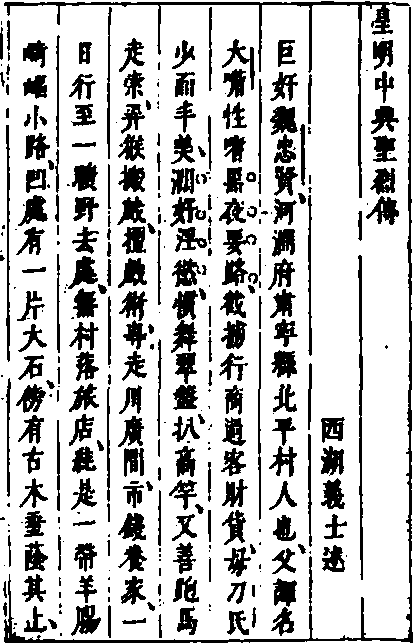 皇明中興聖烈傳
西湖義士述
巨奸魏忠賢河澗府肅寧縣北平村人也父諱名
大嘴性嗜黑夜要路截捕行商過客財貨母刀氏
少而丰美澗奸淫慾慣舞翠盤扒高竿又善跑馬
走索弄猴搬戲擅戲術專走川廣間市錢養家一
日行至一曠野去處無村落旅店純是一帶羊腸
崎嶇小路凹處有一片大石傍有古木垂蔭其上